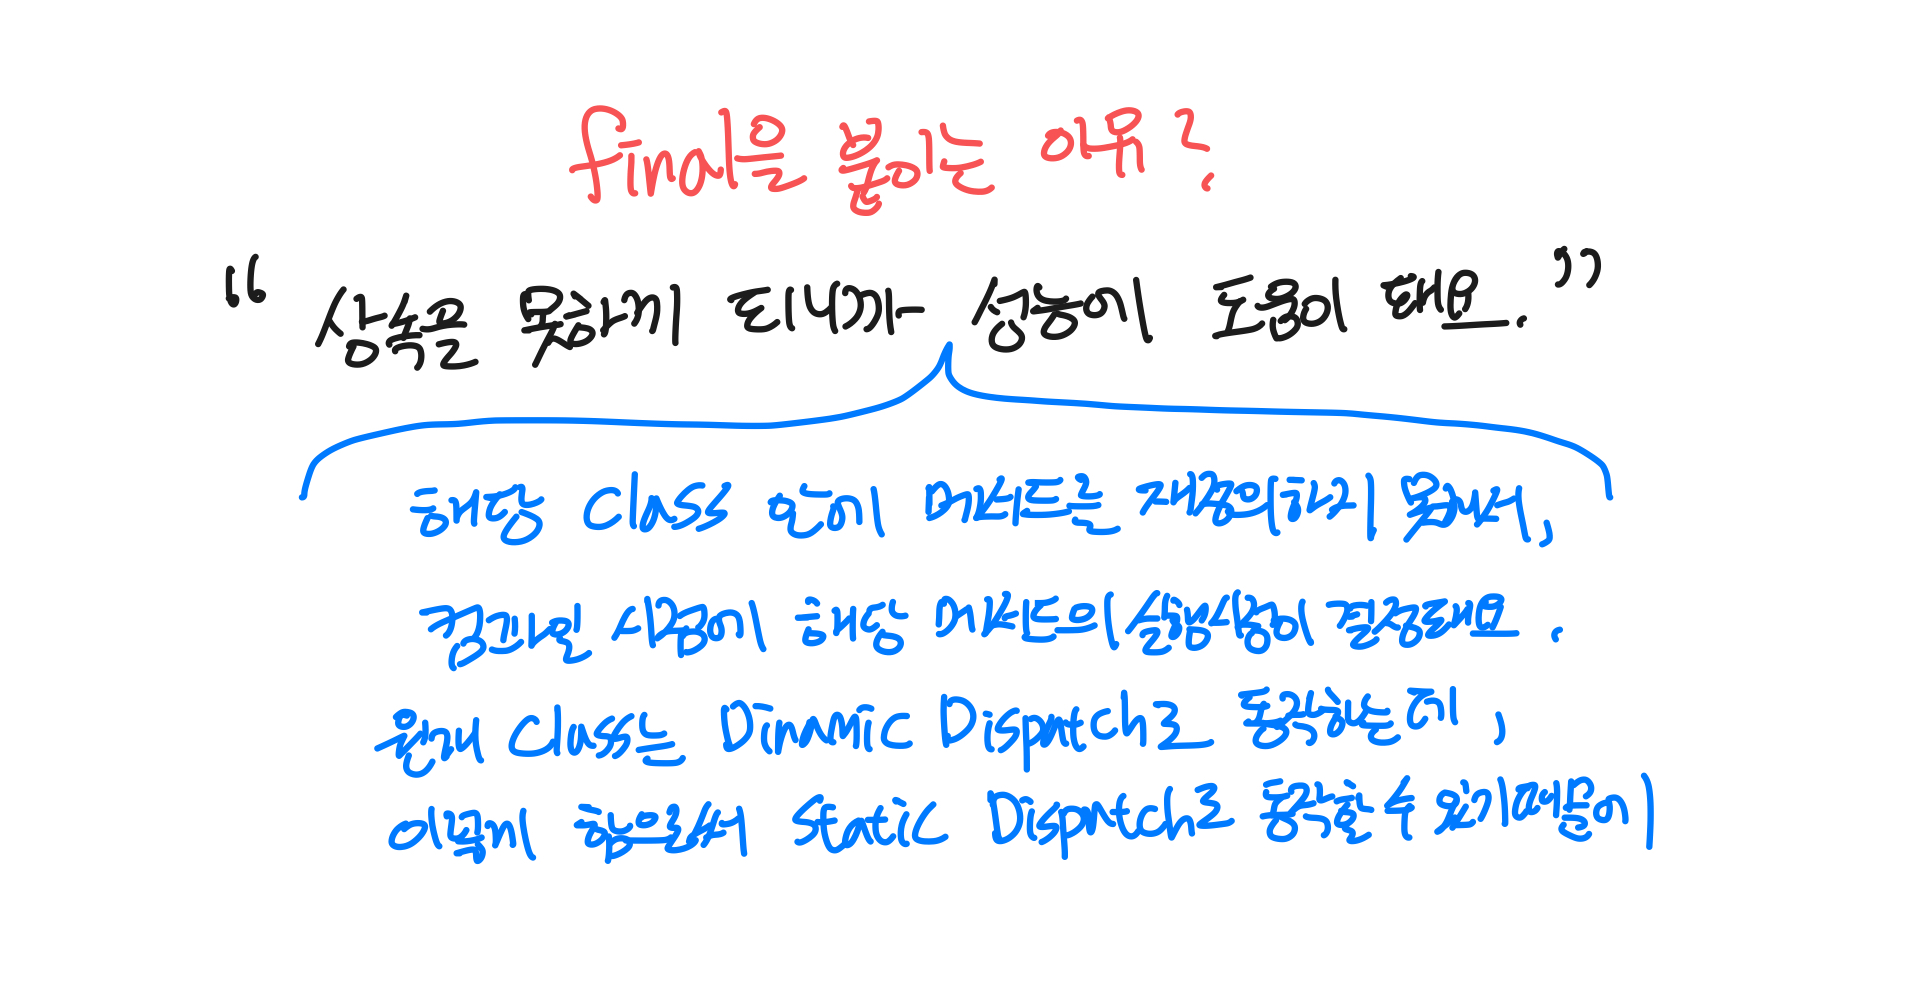 final을 붙이는 이유?
“ 상속을 못하게 되니까 성능에 도움이 돼요. ”
해당 Class 안에 메서드를 재정의하지 못해서,
컴파일 시점에 해당 메서드의 실행시점이 결정돼요.
원래 Class는 Dinamic Dispatch로 동작하는데,
이렇게 함으로써 Static Dispatch로 동작할 수 있기 때문에